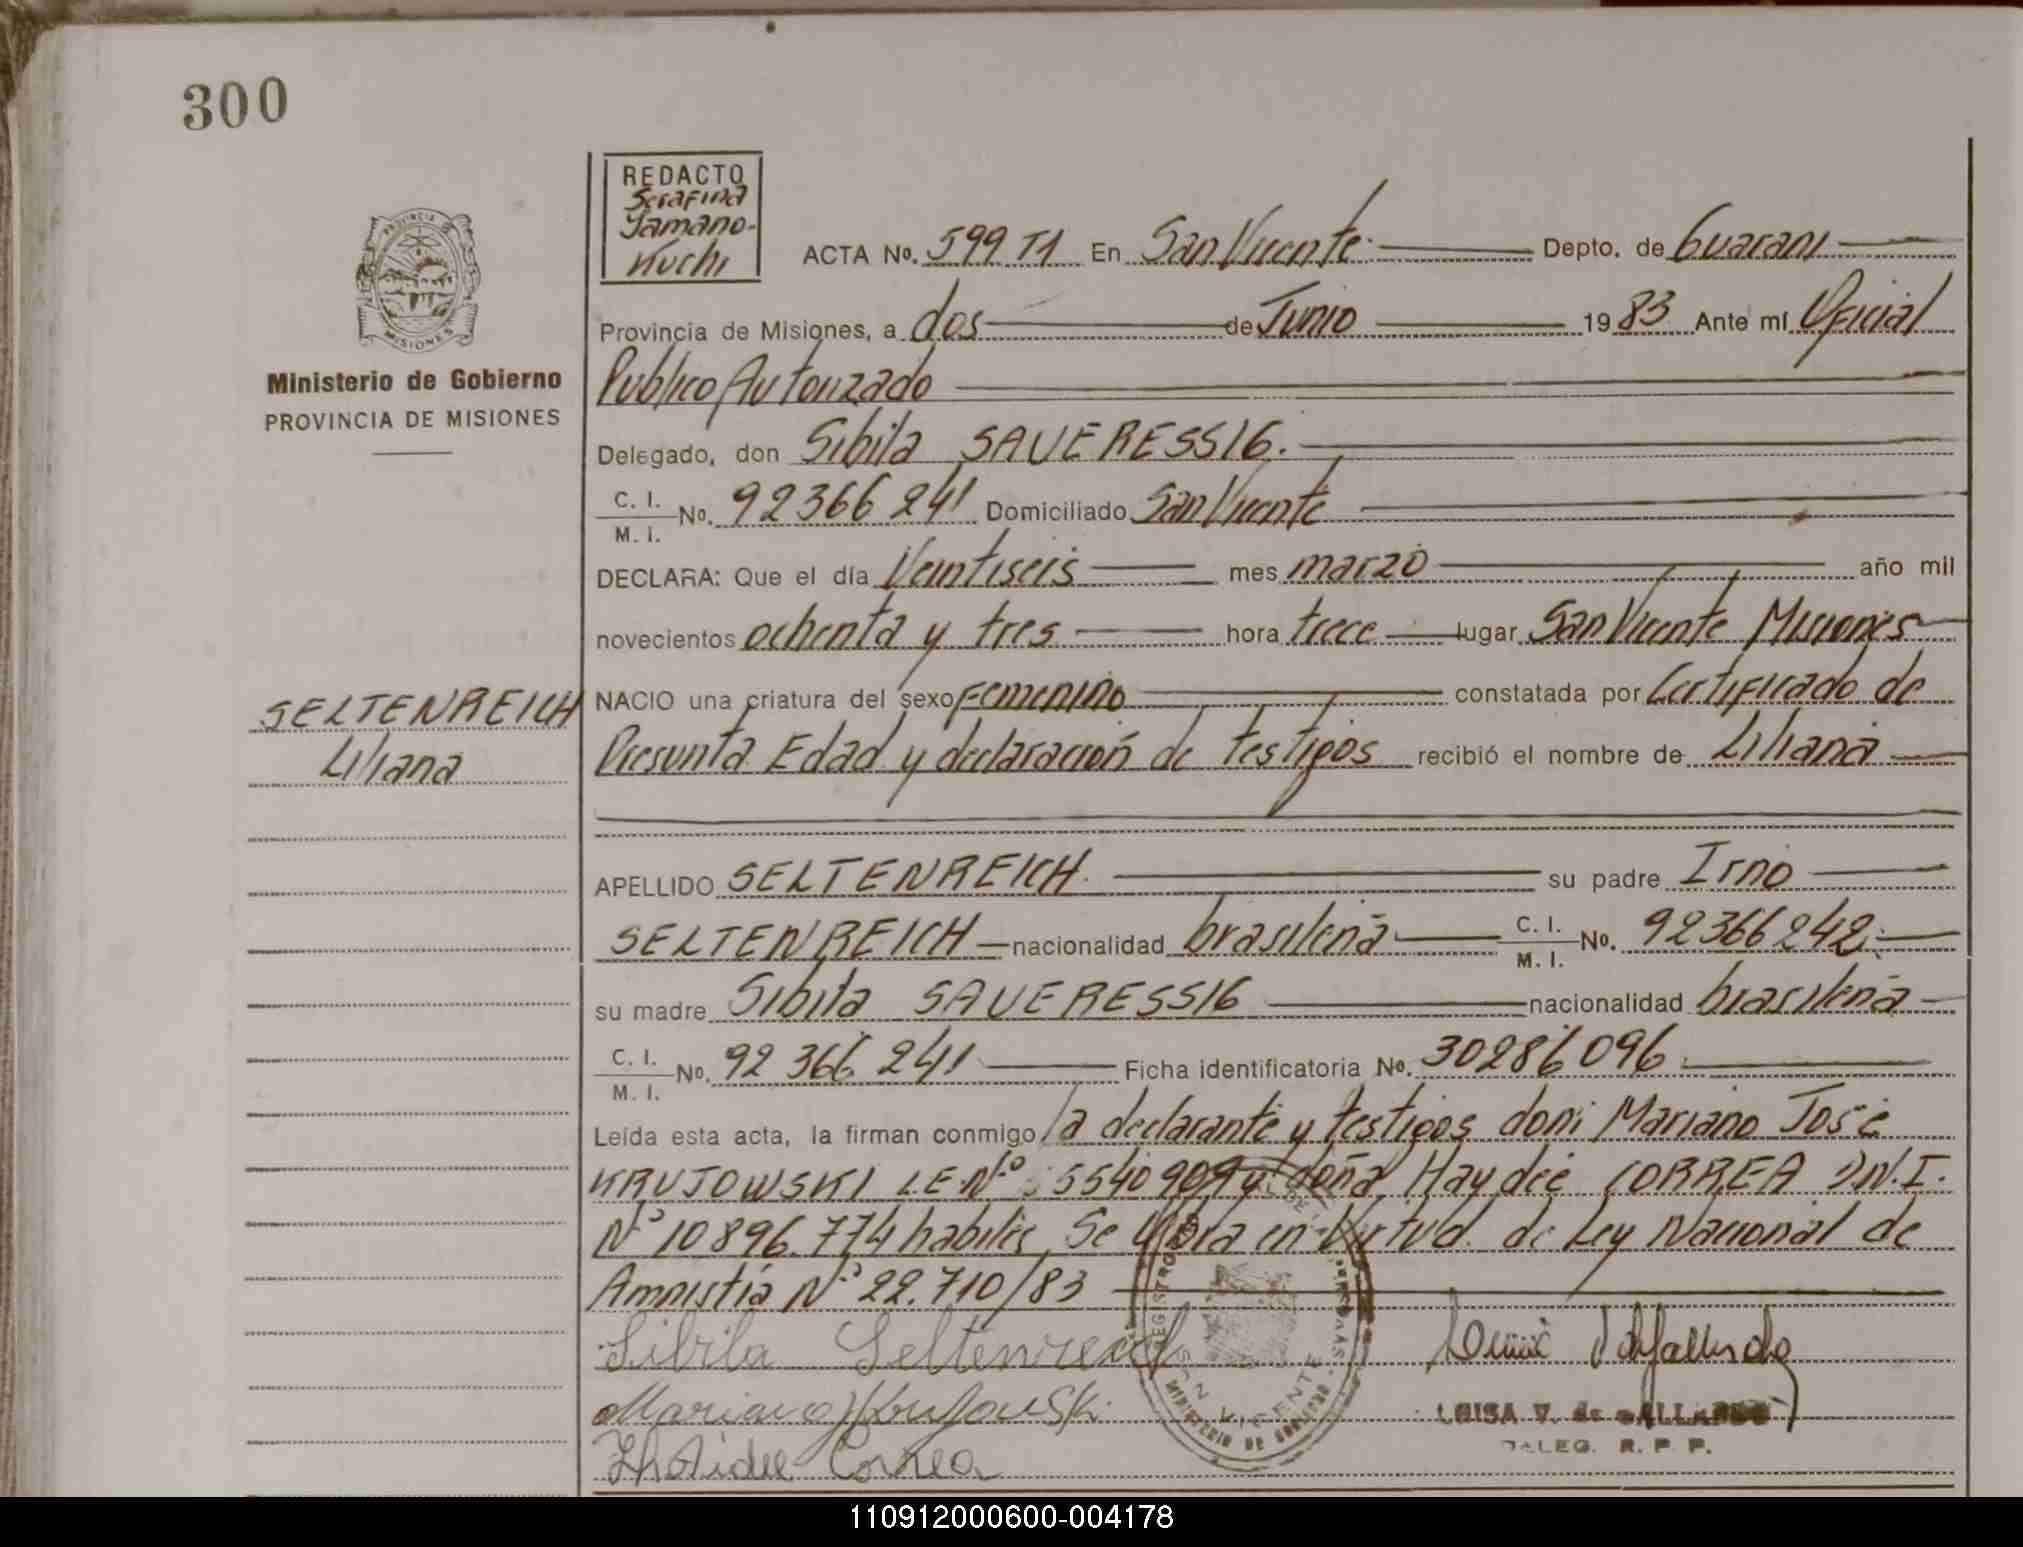 300
REDACTO
Serafina
Yamano-
Kuchi
PROVINCIA
MISIONES
Ministerio de Gobierno
PROVINCIA DE MISIONES
ACTA No. 599 T1 En San Vicente. Depto. de Guarani
Provincia de Misiones, a dos de Junio 1983 Ante mí Oficial
Publico Autorizado
Delegado, don Sibila SAUERESSIG.
C. I.
M. I. No. 92366241 Domiciliado San Vicente
DECLARA: Que el día Veintiseis mes marzo año mil
novecientos ochenta y tres hora trece lugar San Vicente Misiones
SELTENREICH
Liliana
NACIO una criatura del sexo Femenino constatada por Certificado de
Presunta Edad y declaración de testigos recibió el nombre de Liliana
APELLIDO SELTENREICH. su padre Irno
SELTENREICH nacionalidad brasileña C. I.
M. I. No. 92366242.
su madre Sibila SAUERESSIG nacionalidad brasileña
C. I.
M. I. No. 92 366 241 Ficha identificatoria No. 30286096.
Leída esta acta, la firman conmigo la declarante y testigos don: Mariano José
KRUJOWSKI L.E.Nº 5540909 y doña Haydeé CORREA D.N.I.
Nº 10896.774 habiles, Se labra en virtud de Ley Nacional de
Amnistía Nº 22.710/83
Sibila Seltenreich
Mariano Krujouski
Haidee Correa
MINISTERIO DE GOBIERNO
VICENTE
LUISA V. de GALLARDO
DELEG. R. P. P.
110912000600-004178